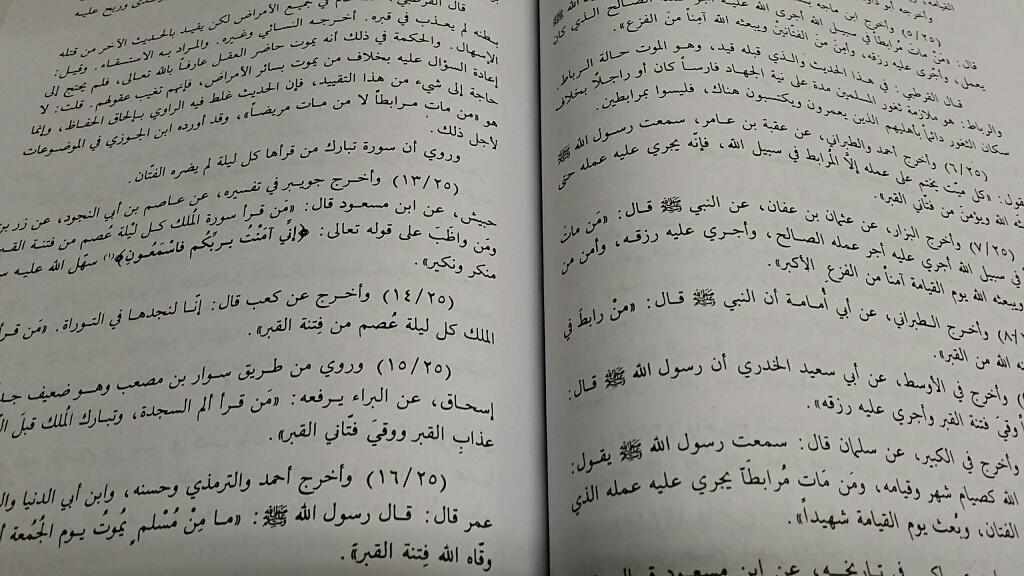 القيامة،
وأخرجه أبو داو
(٥/٢٥) وأخرج ابن ماجه بس
قال: «مَنْ مَاتَ مُرابطاً في سبيل الله أجرى الله عليه أجر عمله الصالح الذي كان
يعمل، وأجرى عليه رزقه، وأمن من الفتّانين ويبعثه الله آمناً من الفزع».
قال القرطبي: في هذا الحديث والذي قبله قيد، وهو الموت حالة الرباط.
والرباط: هو ملازمة ثغور المسلمين مدة على نية الجهاد فارساً كان أو راجلاً بخلاف
سكان الثغور دائماً بأهليهم الذين يعمرون ويكتسبون هناك، فليسوا بمرابطين.
(٦/٢٥) وأخرج أحمد والطبراني، عن عقبة بن عامر، سمعت رسول الله ﷺ
يقول: «كل ميّت يختم على عمله إلاَّ المُرابط في سبيل الله، فإنّه يجري عليه عمله حتى
الله ويؤمن من فتّاني القبر».
(٧/٢٥) وأخرج البزار، عن عثمان بن عفان، عن النبي ﷺ قال: «مَن ماتَ
في سبيل الله أجري عليه أجر عمله الصالح، وأجري عليه رزقه، وأمن من
ويبعثه الله يوم القيامة آمناً من الفزع الأكبر».
وأخرج الطبراني، عن أبي أُمامة أن النبي ﷺ قال: «منْ رابطَ في
الله من القبر».
وأخرج في الأوسط، عن أبي سعيد الخدري أن رسول الله ﷺ قال:
وقيَ فتنة القبر وأجري عليه رزقه».
وأخرج في الكبير، عن سلمان قال: سمعت رسول الله ﷺ يقول:
الله كصيام شهر وقيامه، ومَن مَات مُرابطاً يجري عليه عمله الذي
الفتان، وبُعث يوم القيامة شهيداً».
في تاريخه، عن ابن مسعود
قال القرطبي
في جميع الأمراض لكن يقيد بالحديث الآخر من قتله
بطنه لم يعذب في قبره. أخرجه النسائي وغيره. والمراد به الاستسقاء. وقيل:
الإسهال. والحكمة في ذلك أنه يموت حاضر العقل عارفاً بالله تعالى، فلم يحتج إلى
إعادة السؤال عليه بخلاف من يموت بسائر الأمراض، فإنهم تغيب عقولهم. قلت: لا
حاجة إلى شيء من هذا التقييد، فإن الحديث غلط فيه الراوي بإلحاق الحفاظ، وإنما
هو «من مات مرابطاً لا من مات مريضاً»، وقد أورده ابن الجوزي في الموضوعات
لأجل ذلك.
وروي أن سورة تبارك من قرأها كل ليلة لم يضره الفتّان.
(١٣/٢٥) وأخرج جويبر في تفسيره، عن عاصم بن أبي النجود، عن زر بن
حبيش، عن ابن مسعود قال: «مَن قرأ سورة المُلك كل ليْلة عُصم من فتنة القب
ومَن واظَبَ على قوله تعالى: ﴿إِنِّي آمَنْتُ بِرَبِّكُم فَاسْمَعُونِ﴾(١) سهّل الله عليه س
منكر ونكير».
(١٤/٢٥) وأخرج عن كعب قال: إنّا لنجدها في التوراة. «مَن قرأ
الملك كل ليلة عُصم من فِتنة القبر».
(١٥/٢٥) وروي من طريق سوار بن مصعب وهو ضعيف جد
إسحاق، عن البراء يرفعه: «مَن قرأ الم السجدة، وتبارك المُلك قبلَ
عذابِ القبر ووقيَ فتّاني القبر».
(١٦/٢٥) وأخرج أحمد والترمذي وحسنه، وابن أبي الدنيا وال
عمر قال: قال رسول الله ﷺ: «ما مِنْ مُسْلم يُموتُ يوم الجُمُعة أ
وقاه الله فِتنة القبر».